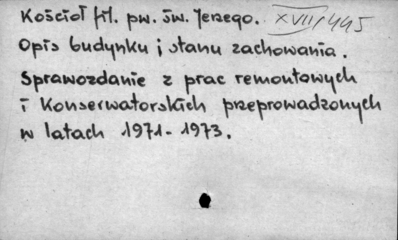 Kościół fil. pw. św. Jerzego. XVII/445
Opis budynku i stanu zachowania.
Sprawozdanie z prac remontowych
i konserwatorskich przeprowadzonych
w latach 1971-1973.